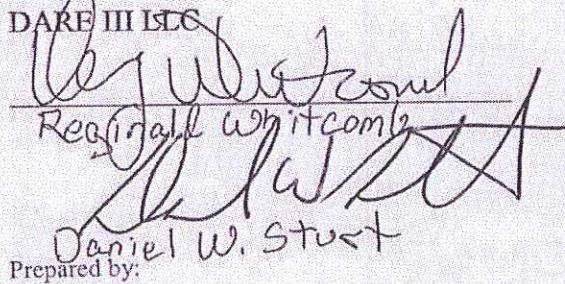 DARE III LLC
Reg Whitcomb
Reginald Whitcomb
Daniel W. Sturt
Prepared by: